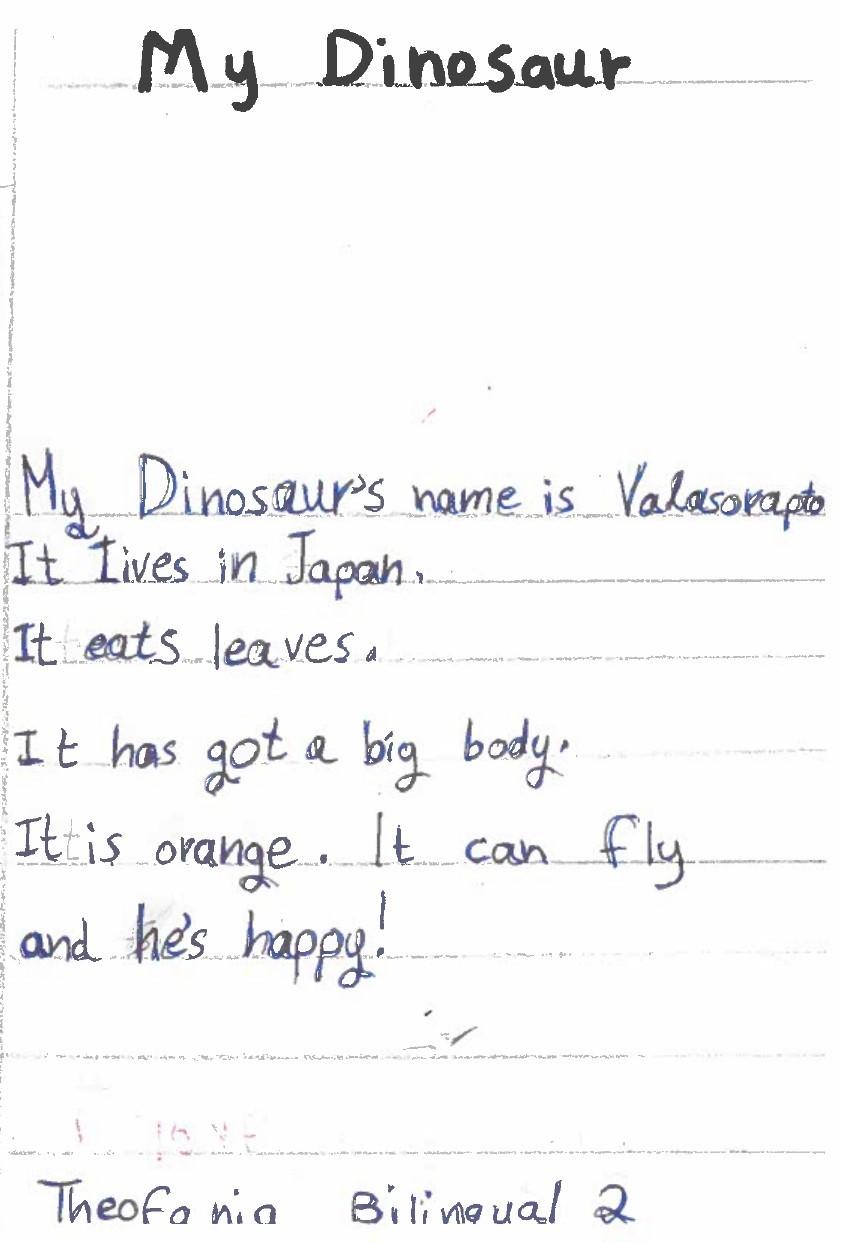 My Dinosaur
My Dinosaur's name is Valasorapto
It lives in Japan.
It eats leaves.
It has got a big body.
It is orange. It can fly
and he's happy!
Theofania Bilingual 2